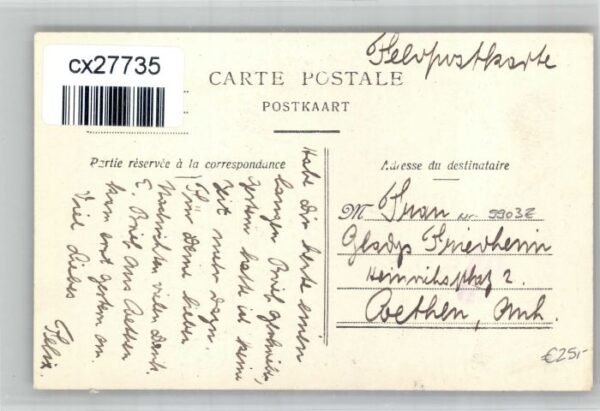 cx27735
Feldpostkarte
CARTE POSTALE
POSTKAART
Partie réservée à la correspondance
Adresse du destinataire
Habe dir heute einen
langen Brief geschrieben,
gestern hatte ich keine
Zeit mehr dazu.
Für Deine lieben
Nachrichten vielen Dank.
E. Brief aus Coethen
kam erst gestern an.
Viel Liebes
Felix.
M Frau
Nr. 9903E
Gladys Friedheim
Heinrichsplatz 2.
Coethen, Anh.
€25,-